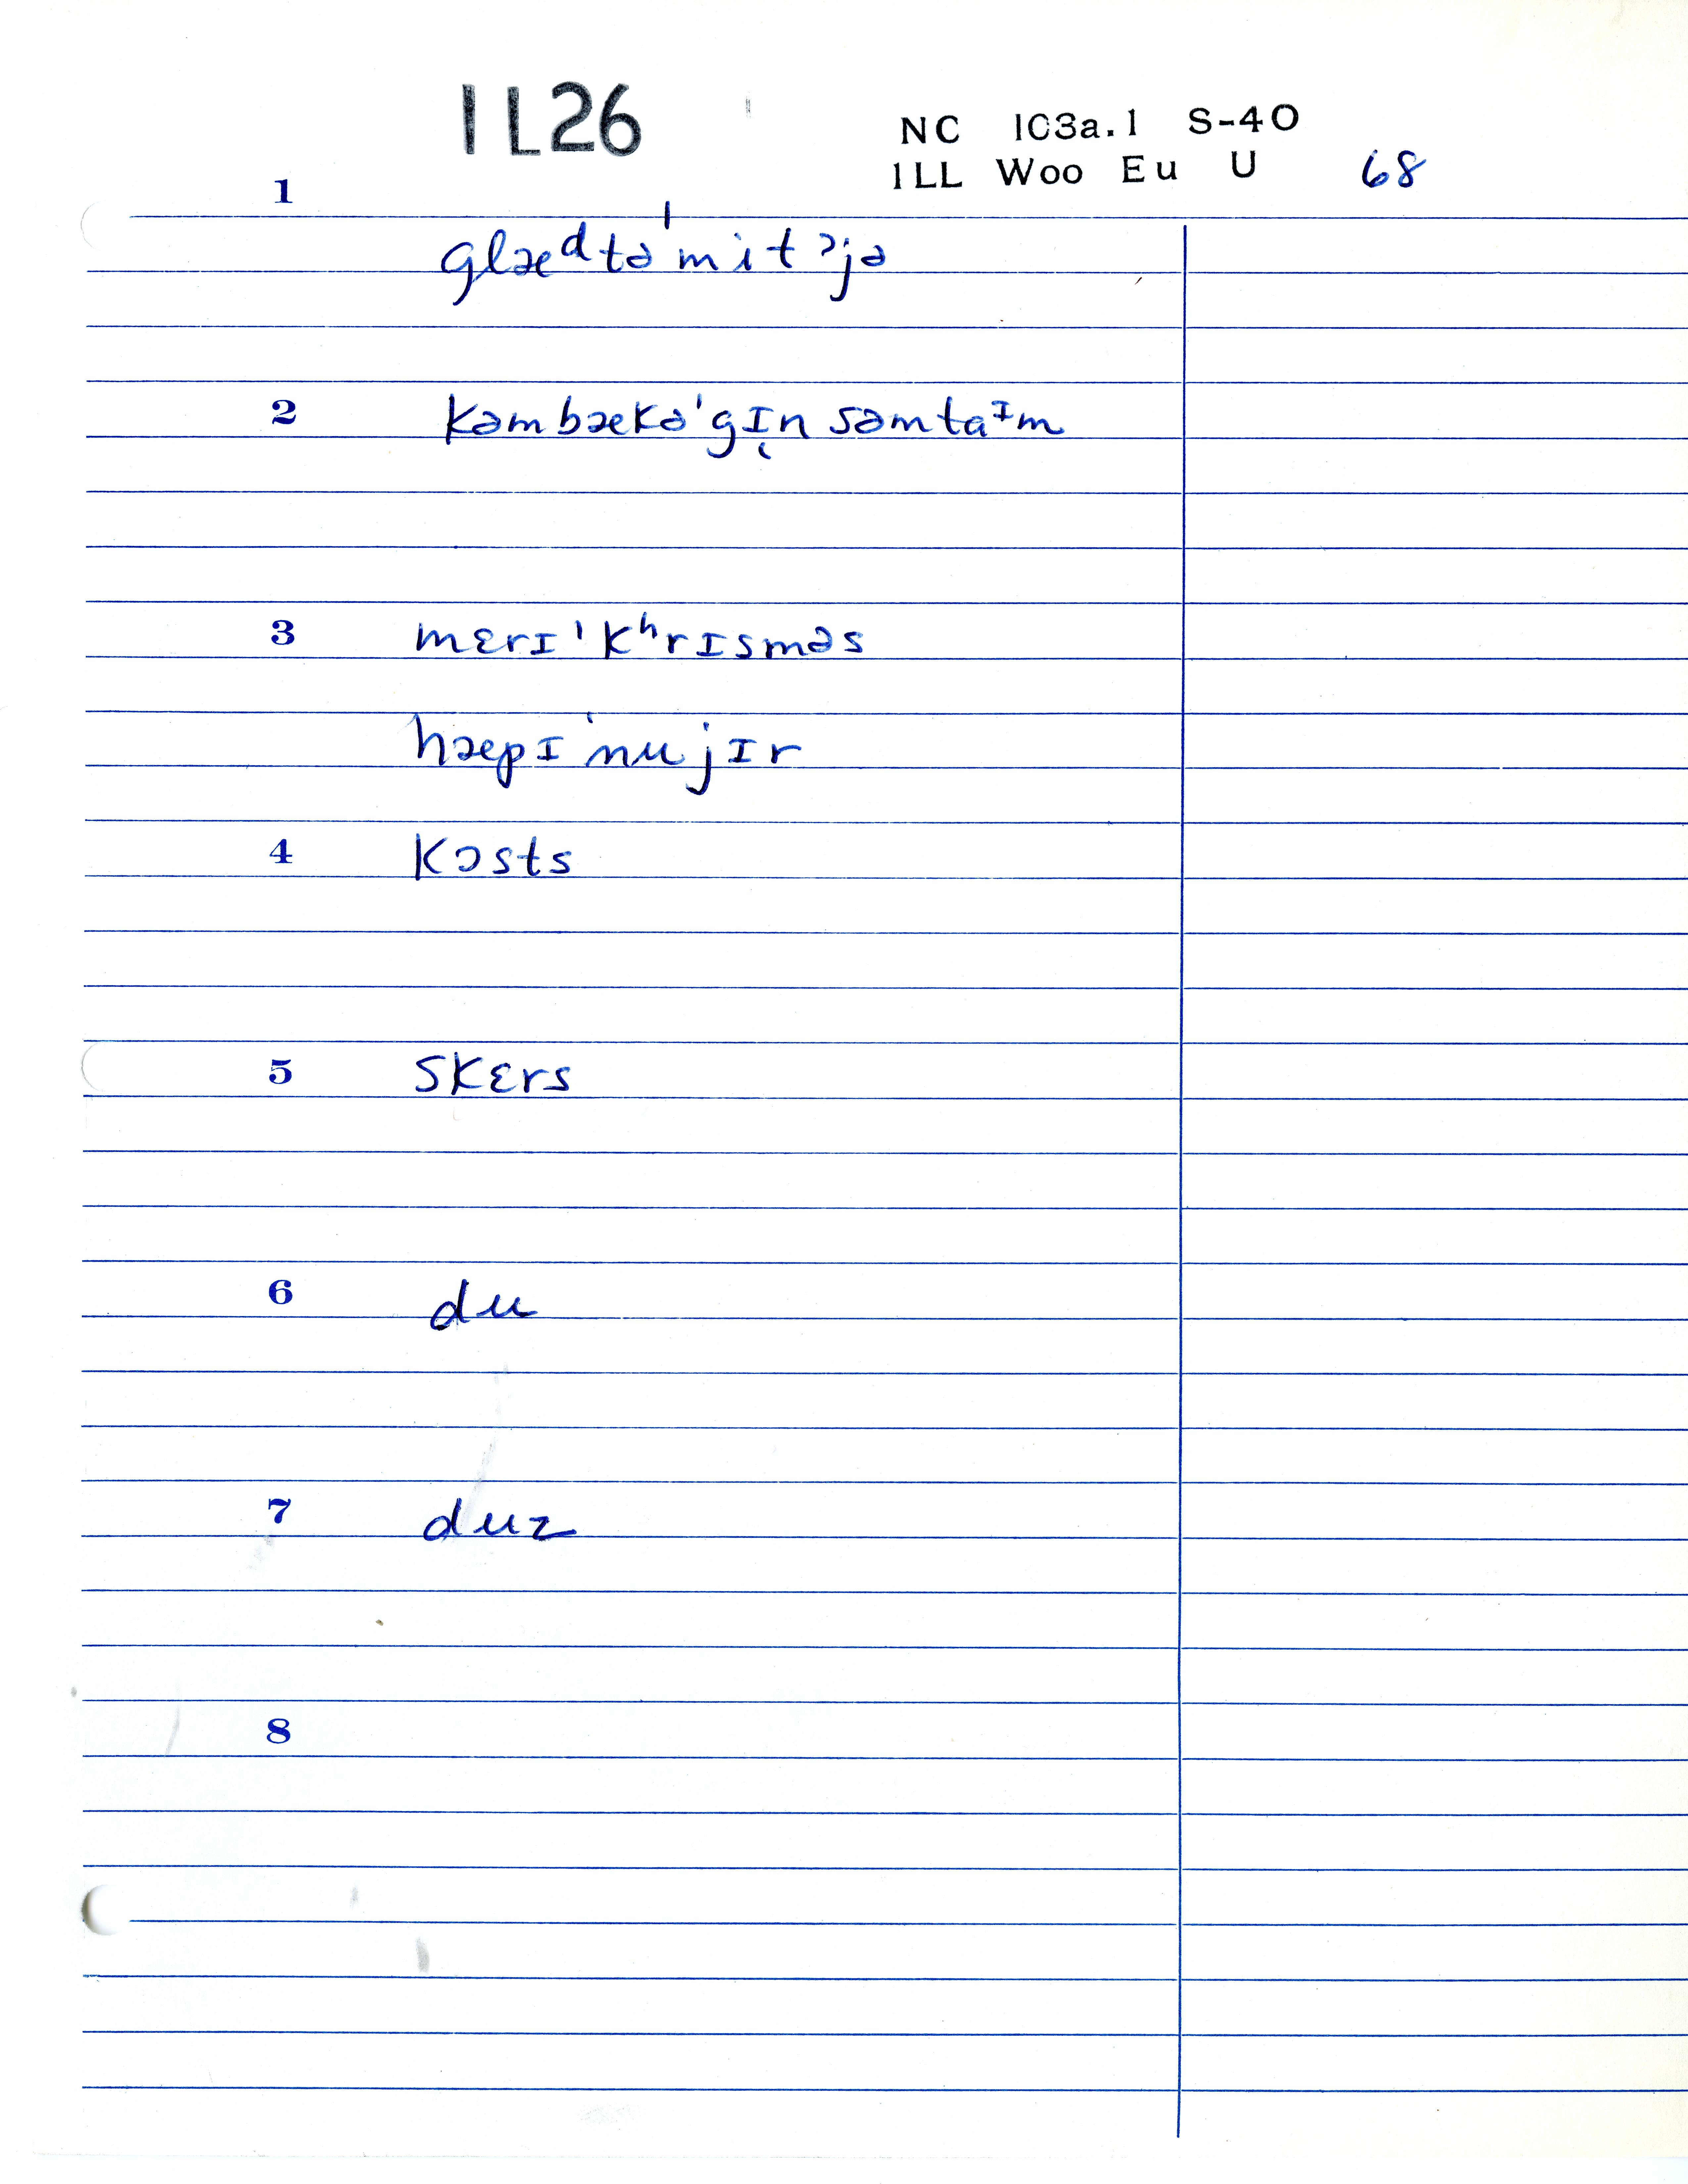 IL26
NC 103a.1 S-40
ILL Woo Eu U 68
1
glæᵈtə'mitˀjə
2 kəmbækə'gɪ̨n səmtaᶦm
3 mɛrɪ'kʰrɪsməs
hæpɪ'nujɪr
4 kɔsts
5 skɛrs
6 du
7 duz
8